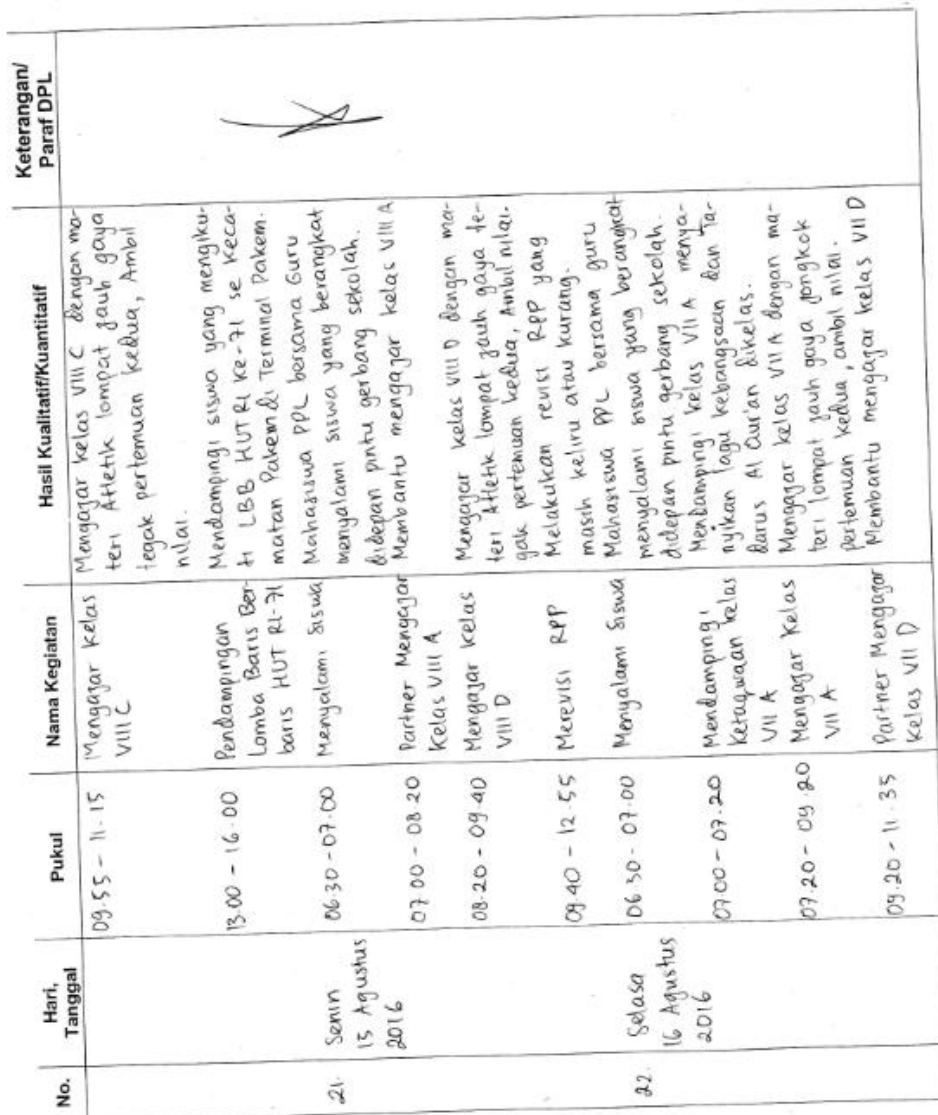 No.
Hari,
Tanggal
Pukul
Nama Kegiatan
Hasil Kualitatif/Kuantitatif
Keterangan/
Paraf DPL
09.55 - 11.15
Mengajar Kelas
VIII C
Mengajar kelas VIII C dengan ma-
teri Atletik lompat jauh gaya
tegak pertemuan kedua, Ambil
nilai.
13.00 - 16.00
Pendampingan
Lomba Baris Ber-
baris HUT RI-71
Mendampingi siswa yang mengiku-
ti LBB HUT RI Ke-71 se Keca-
matan Pakem di Terminal Pakem.
21.
Senin
15 Agustus
2016
06.30 - 07.00
Menyalami Siswa
Mahasiswa PPL bersama Guru
menyalami siswa yang berangkat
didepan pintu gerbang sekolah.
07.00 - 08.20
Partner Mengajar
Kelas VIII A
Membantu mengajar kelas VIII A
08.20 - 09.40
Mengajar Kelas
VIII D
Mengajar kelas VIII D dengan ma-
teri Atletik lompat jauh gaya te-
gak pertemuan kedua, Ambil nilai.
09.40 - 12.55
Merevisi RPP
Melakukan revisi RPP yang
masih keliru atau kurang.
22.
Selasa
16 Agustus
2016
06.30 - 07.00
Menyalami Siswa
Mahasiswa PPL bersama guru
menyalami siswa yang berangkat
didepan pintu gerbang sekolah.
07.00 - 07.20
Mendampingi
Ketaqwaan kelas
VII A
Mendampingi kelas VII A menya-
nyikan lagu kebangsaan dan Ta-
darus Al Qur'an dikelas.
07.20 - 09.20
Mengajar Kelas
VII A
Mengajar kelas VII A dengan ma-
teri lompat jauh gaya jongkok
pertemuan kedua, ambil nilai.
09.20 - 11.35
Partner Mengajar
Kelas VII D
Membantu mengajar kelas VII D